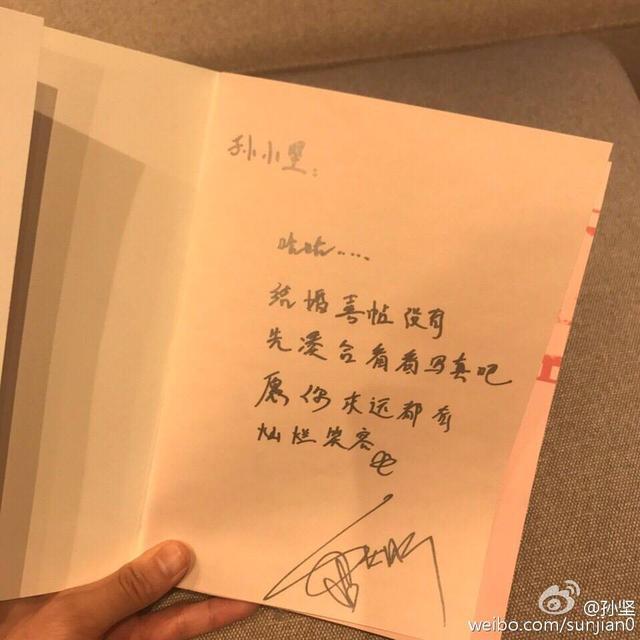 孙小坚：
哈哈....
结婚喜帖没有
先凑合看看写真吧
愿你永远都有
灿烂笑容
@孙坚
weibo.com/sunjian0